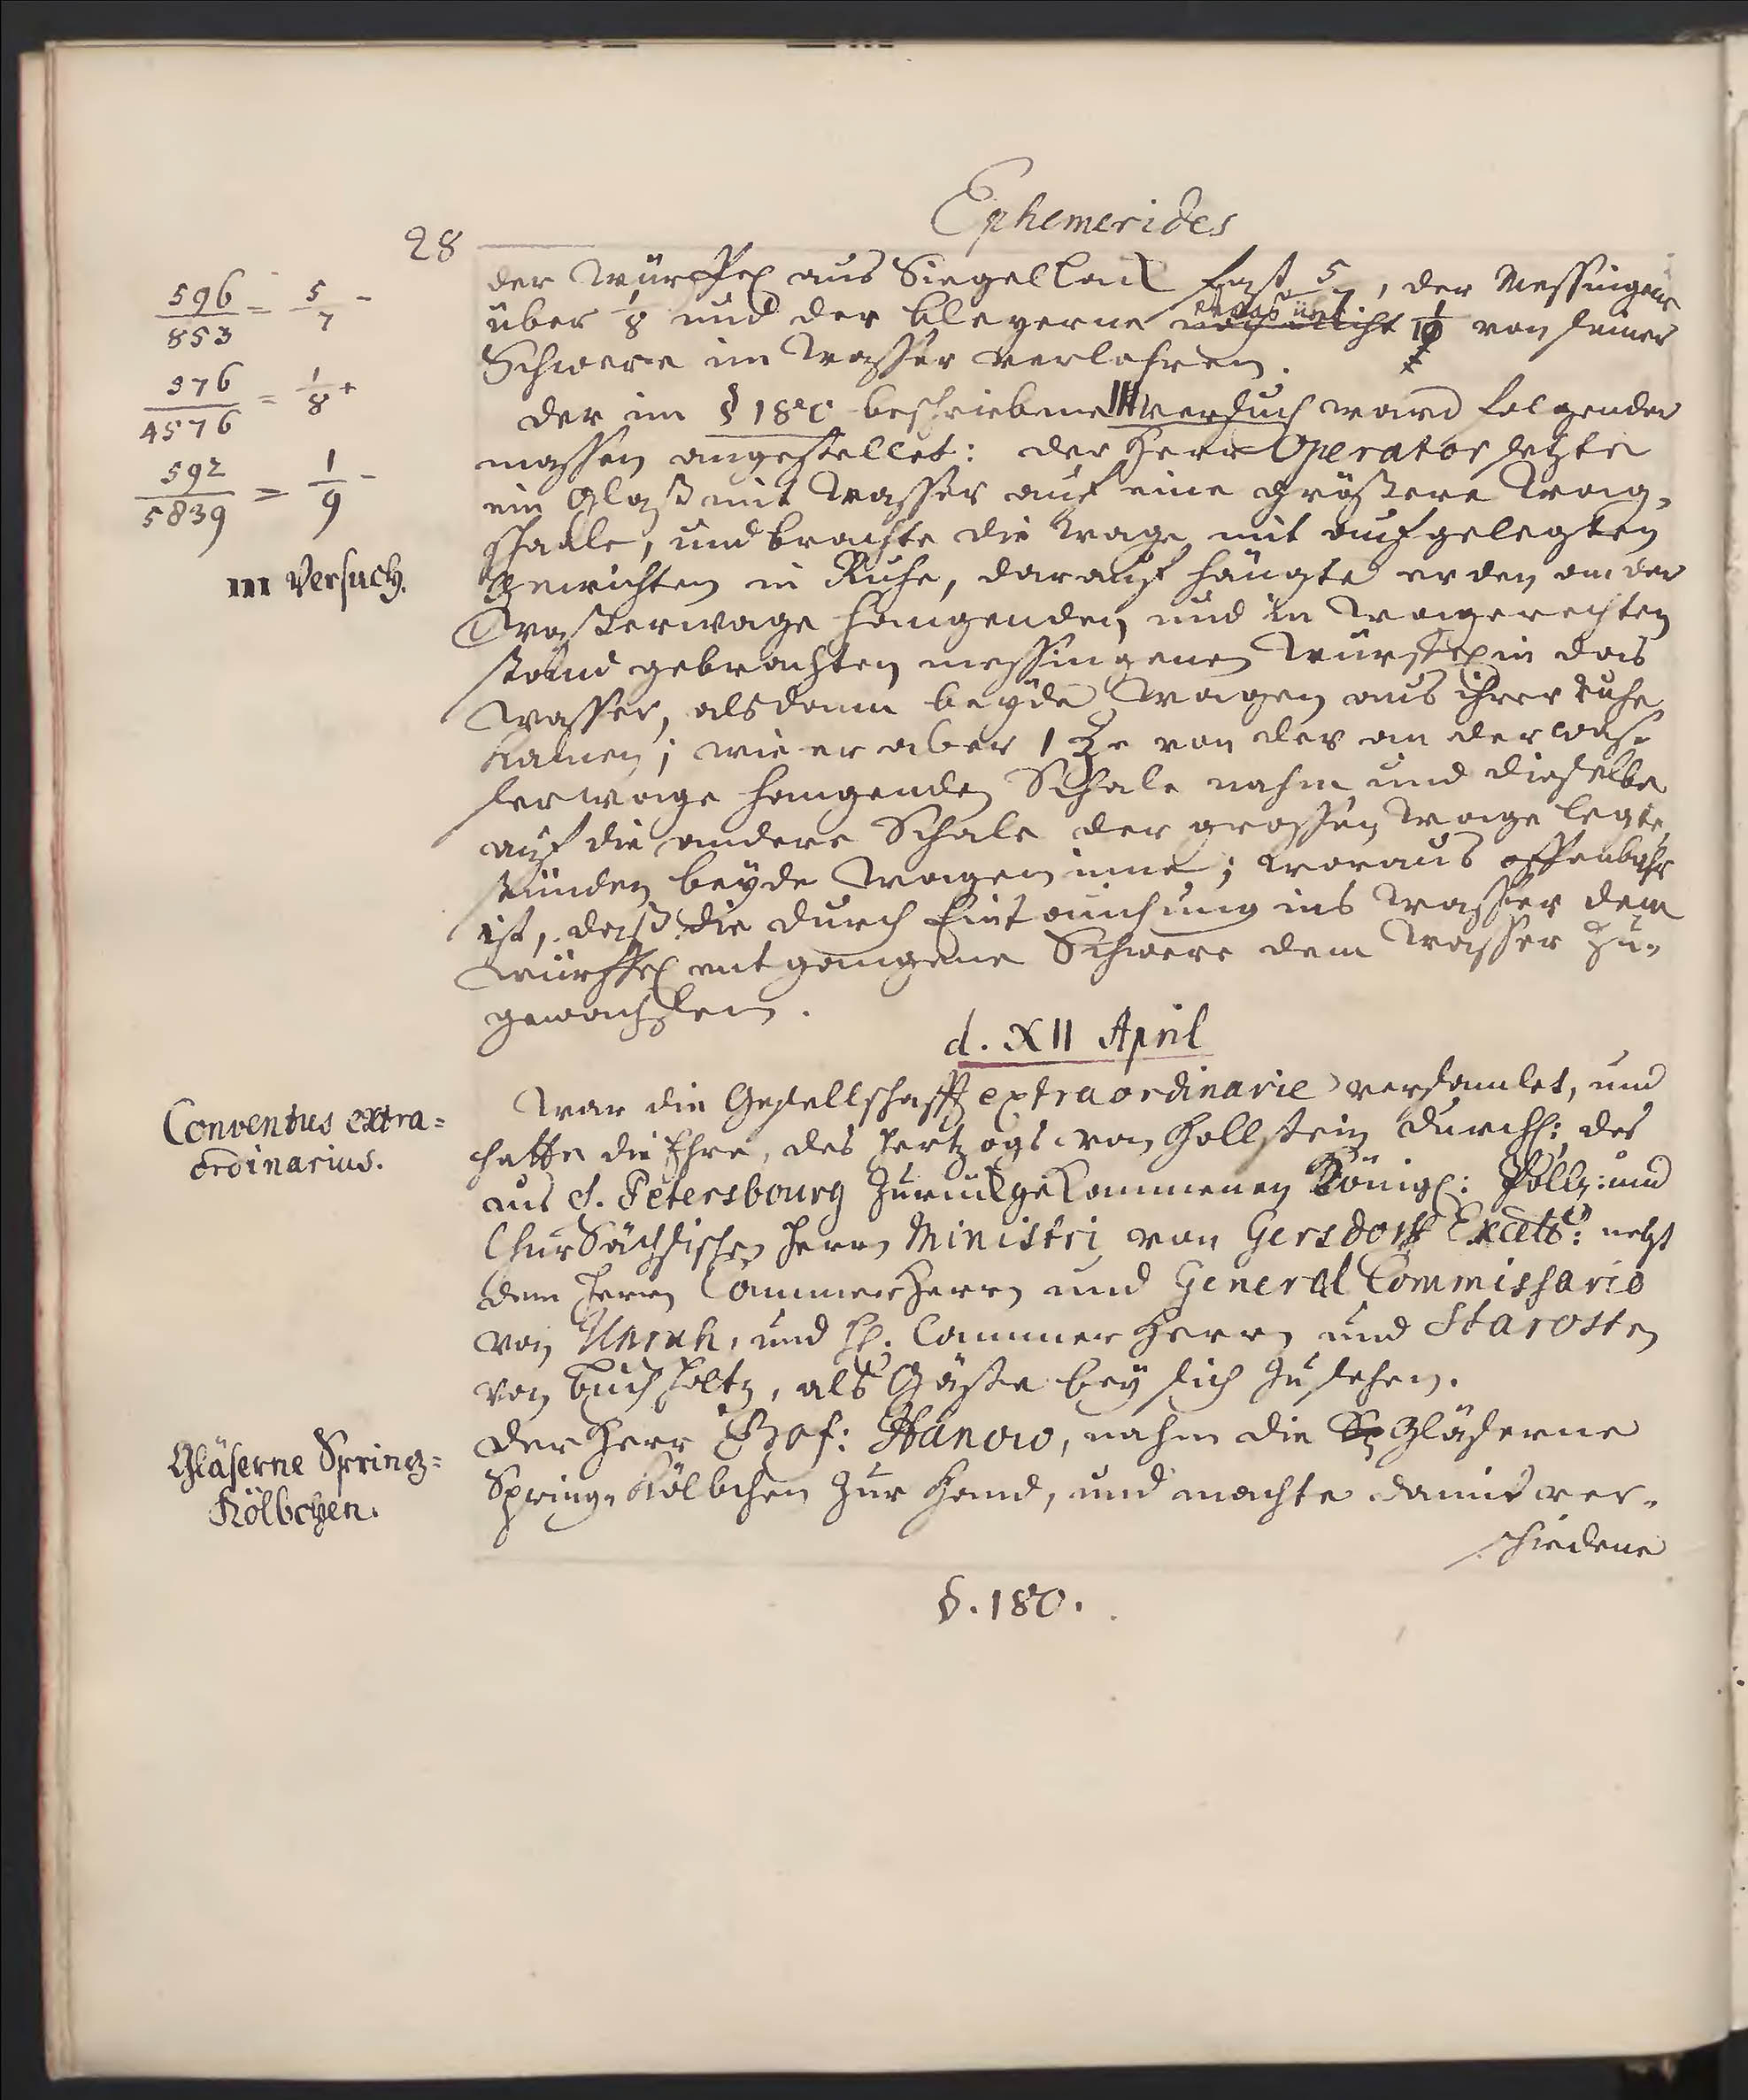 Ephemerides
28
596/853 = 5/7 -
376/4576 = 1/8 +
592/5839 = 1/9 -
der Würffel aus Siegellack fast 5/7, der Messingene
über 1/8 und der bleyerne etwas über von seiner
Schwere im Wasser verlohren.
III Versuch.
Der im § 180 beschriebene III Versuch ward folgender
massen angestellet: der Herr Operator setzte
ein Glaß mit Wasser auf eine größere Wag-
schaale, und brachte die Wage mit aufgelegten
Gewichten in Ruhe, darauf hängte er den an der
Waßerwage hangenden, und in wagerechten
stand gebrachten messingenen Würffel in das
Wasser, alsdann beyde Wagen aus ihrer ruhe
kamen; wie er aber 1 Zr von der an der Was-
serwage hangenden Schale nahm und dieselbe
auf die andere Schale der grossen Wage legte,
stunden beyde Wagen inne; woraus offenbahr
ist, daß die durch Eintauchung ins Wasser dem
Würffel entgangene Schwere dem Wasser zu-
gewachsen.
d. XII April
Conventus extra=
ordinarius.
War die Gesellschafft extraordinarie versamlet, und
hatte die Ehre, des Hertzogs von Hollstein Durchl: des
aus S. Petersbourg zurückgekommenen Königl: Polln: und
ChurSächsischen Herrn Ministri von Gersdorff Excell: nebst
dem Herrn CammerHerrn und General Commissario
von Unruh, und H. CammerHerrn und Starosten
von Buchholtz, als Gäste bey sich zu sehen.
Gläserne Spring=
Kölbchen.
Der Herr Prof: Hanow, nahm die Gläserne
Spring-Kölbchen zur Hand, und machte damit ver-
schiedene
§. 180.